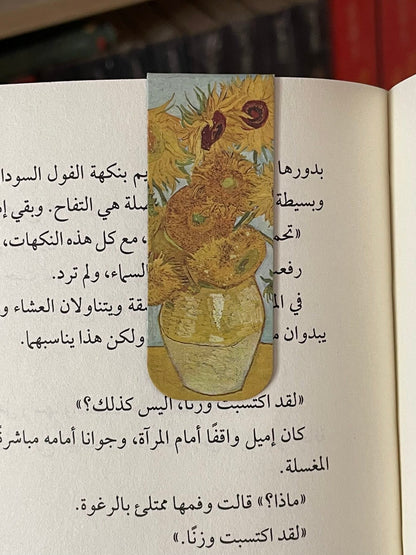 بدورها يم بنكهة الفول السودا
وبسيطة سلة هي التفاح. وبقي إ
«تحم ، مع كل هذه النكهات،
رفعت السماء، ولم ترد.
في الم قة ويتناولان العشاء و
يبدوان م ولكن هذا يناسبهما.
«لقد اكتسبت وزنًا، أليس كذلك؟»
كان إميل واقفًا أمام المرآة، وجوانا أمامه مباشرة
المغسلة.
«ماذا؟» قالت وفمها ممتلئ بالرغوة.
«لقد اكتسبت وزنًا.»